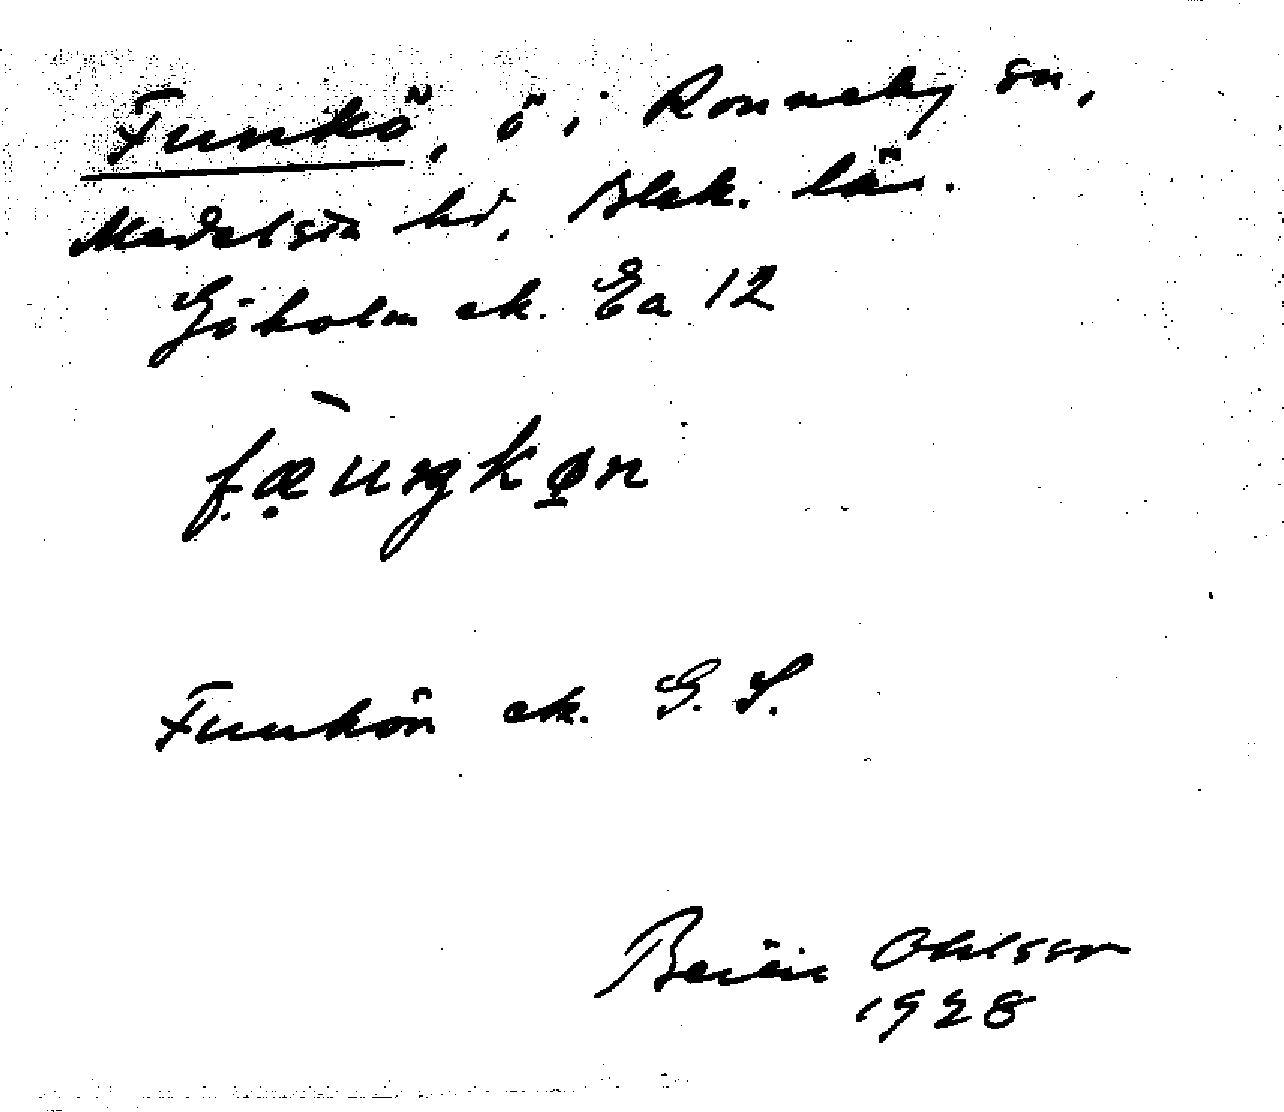 Funkö, ö i Ronneby sn,
Medelsta hd, Blek. län.
Göholm ek. Ea 12
fæungkøn
Funkön ek. G. S.
Ohlsson
1928